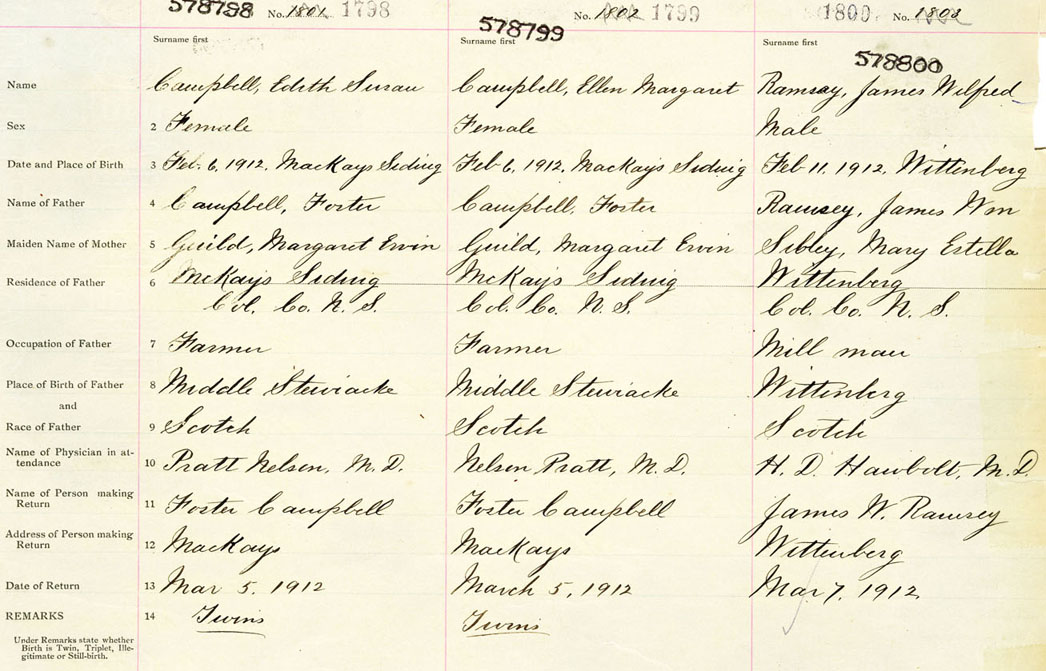 578798 No. 1801 1798
578799 No. 1802 1799
1800 No. 1803
578800
Surname first Surname first Surname first
Name Campbell, Edith Susan Campbell, Ellen Margaret Ramsay, James Wilfred
Sex 2 Female Female Male
Date and Place of Birth 3 Feb. 6, 1912, MacKays Siding Feb 6, 1912, MacKays Siding Feb 11, 1912, Wittenberg
Name of Father 4 Campbell, Foster Campbell, Foster Ramsey, James Wm
Maiden Name of Mother 5 Guild, Margaret Ervin Guild, Margaret Ervin Sibley, Mary Estella
Residence of Father 6 McKays Siding McKays Siding Wittenberg
Col. Co. N. S. Col. Co. N. S. Col. Co. N. S.
Occupation of Father 7 Farmer Farmer Mill man
Place of Birth of Father 8 Middle Stewiacke Middle Stewiacke Wittenberg
and
Race of Father 9 Scotch Scotch Scotch
Name of Physician in at-
tendance 10 Pratt Nelson, M. D. Nelson Pratt, M. D. H. D. Hawbolt, M. D.
Name of Person making
Return 11 Foster Campbell Foster Campbell James W. Ramsey
Address of Person making
Return 12 MacKays MacKays Wittenberg
Date of Return 13 Mar 5, 1912 March 5, 1912 Mar 7, 1912
REMARKS 14 Twins Twins
Under Remarks state whether
Birth is Twin, Triplet, Ille-
gitimate or Still-birth.